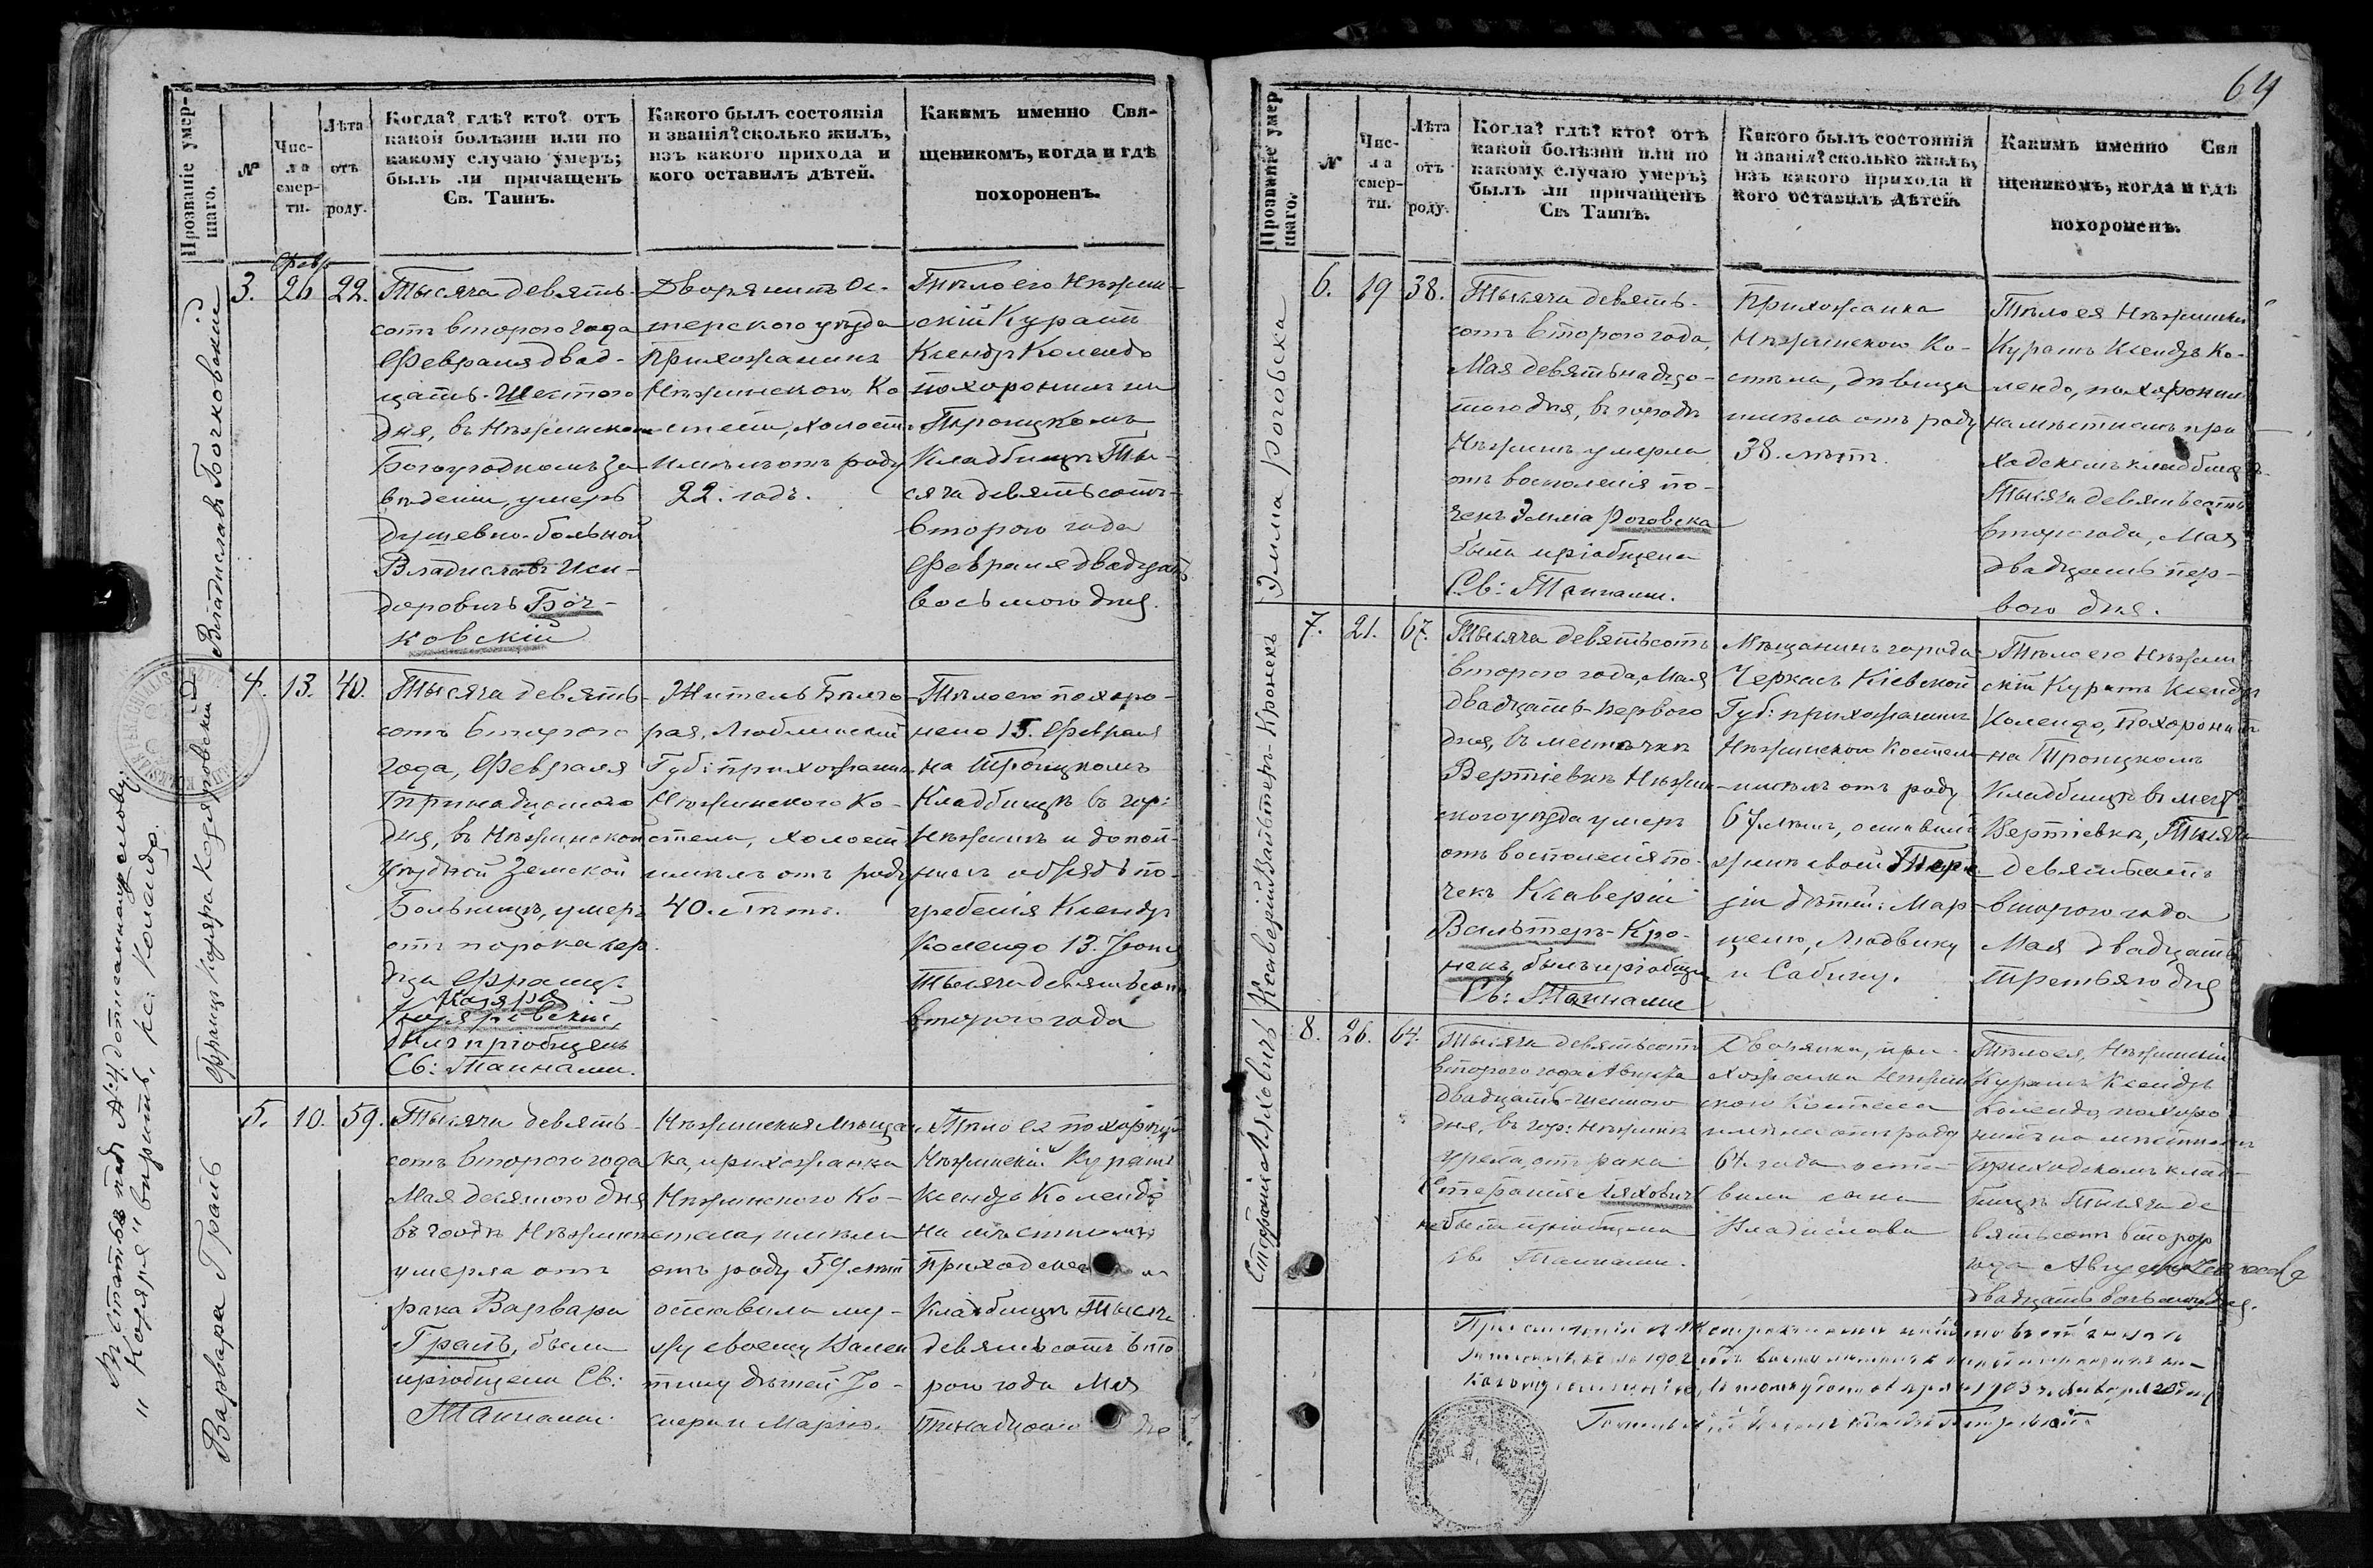 Прозваніе умер-
шаго.
№
Чис-
ла
смер-
ти.
Лѣта
отъ
роду.
Когда? гдѣ? кто? отъ
какой болѣзни или по
какому случаю умеръ;
былъ ли причащенъ
Св. Таинъ.
Какого былъ состоянія
и званія? сколько жилъ,
изъ какого прихода и
кого оставилъ дѣтей.
Какимъ именно Свя-
щеникомъ, когда и гдѣ
похороненъ.
Владиславъ Бочковскій
3.
Февр
26
22.
Тысяча девять-
сотъ второго года
Февраля двад-
цать-шестого
дня, въ Нѣжинском
Богоугодномъ За-
веденіи, умеръ
душевно-больной
Владиславъ Иси-
доровичъ Боч-
ковскій
Дворянинъ Ос-
терского уѣзда
прихожанинъ
Нѣжинского Ко
стела, холостъ
имѣлъ отъ роду
22. года.
Тѣло его Нѣжин-
скій Куратъ
Ксендзъ Колендо
похоронилъ на
Троицкомъ
Кладбищѣ Ты-
сяча девятьсотъ-
второго года
Февраля двадцать
восьмого дня.
Францъ Козяра Козяровскій
4.
13.
40.
Тысяча девять-
сотъ второго
года, Февраля
Тринадцатого
дня, въ Нѣжинской
Уѣздной Земской
Больницѣ, умеръ
отъ порока сер
дца Францъ
Козяра
Козяровскій,
былъ пріобщенъ
Св: Тайнами.
Житель Билго-
рая, Люблинской
Губ: прихожанинъ
Нѣжинского Ко-
стела, холостъ
имѣлъ отъ роду
40. лѣтъ.
Тѣло его похоро-
нено 15. Февраля
на Троицкомъ
Кладбищѣ въ гор:
Нѣжинѣ и допол-
ненъ обрядъ по-
гребенія Ксендзъ
Колендо 13. Іюня
Тысяча девятьсотъ
второго года
Варвара Граль
5.
10.
59.
Тысяча девять-
сотъ второго года
Мая десятого дня
въ городѣ Нѣжинѣ
умерла отъ
рака Варвара
Граль, была
пріобщена Св:
Тайнами.
Нѣжинская Мѣща
ка, прихожанка
Нѣжинского Ко-
стела, имѣла
отъ роду 59 лѣтъ
оставила му-
жу своему Вален
тину дѣтей Іо-
сифа и Марію.
Тѣло ея похорон
Нѣжинскій Куратъ
Ксендзъ Колендо
на мѣстномъ
Приходск
Кладбищѣ Тысяча
девятьсотъ вто
рого года Мая
дня
Въ статьѣ подъ №: 4 дописанному слову:
"Козяра" вѣрить, кс: Колендо.
64
Прозваніе умер
шаго.
№
Чис-
ла
смер-
ти.
Лѣта
отъ
роду.
Когда? гдѣ? кто? отъ
какой болѣзни или по
какому случаю умеръ;
былъ ли причащенъ
Св. Таинъ.
Какого былъ состоянія
и званія? сколько жилъ,
изъ какого прихода и
кого оставилъ дѣтей.
Какимъ именно Свя
щеникомъ, когда и гдѣ
похороненъ.
Эмма Роговска
6.
19
38.
Тысяча девять-
сотъ второго года,
Мая девятнадца-
того дня, въ городѣ
Нѣжинѣ умерла
отъ воспаленія по-
чекъ Эмма Роговска
была пріобщена
Св: Тайнами.
Прихожанка
Нѣжинского Ко-
стела, дѣвица
имѣла отъ роду
38. лѣтъ.
Тѣло ея Нѣжинскій
Куратъ Ксендзъ Ко-
лендо, похоронилъ
на мѣстномъ при
ходскомъ кладбищѣ
Тысяча девятьсотъ
второго года, Мая
двадцать пер-
вого дня.
Ксаверій Вальтеръ-Кронекъ
7.
21.
67.
Тысяча девятьсотъ
второго года, Мая
двадцать-первого
дня, въ мѣстечкѣ
Вертіевкѣ Нѣжин-
ского уѣзда умеръ
отъ воспаленія по-
чекъ Ксаверій
Вальтеръ-Кро-
некъ, былъ пріобще
Св: Тайнами
Мѣщанинъ города
Черкасъ Кіевской
Губ: прихожанинъ
Нѣжинского Костела
имѣлъ отъ роду
67. лѣтъ, оставилъ
женѣ своей
дѣтей: Мар-
целю, Людвику
и Сабину.
Тѣло его Нѣжин
скій Куратъ Ксендзъ
Колендо, похоронилъ
на Троицкомъ
Кладбищѣ въ мест
Вертіевкѣ, Тысяча
девятьсотъ
второго года
Мая двадцать
третьяго дня
Стефанія Ляховичъ
8.
26.
64.
Тысяча девятьсотъ
второго года Августа
двадцать-шестого
дня, въ гор: Нѣжинѣ
умерла, отъ рака
Стефанія Ляховичъ
не была пріобщена
Св Тайнами.
Дворянка, при-
хожанка Нѣжин
ского Костела
имѣла отъ роду
64. года оста-
вила сына
Владислава
Тѣло ея, Нѣжинскій
Куратъ Ксендзъ
Колендо, похоро
нилъ на мѣстномъ
Приходскомъ клад-
бищѣ Тысяча де
вятьсотъ второго
года Августа
двадцать восьмого дня.